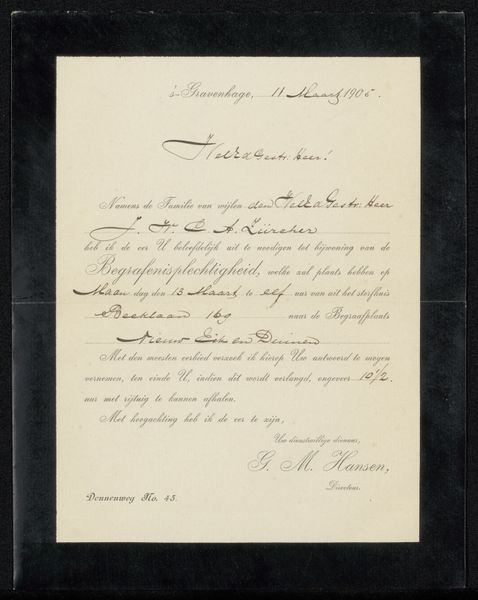 's-Gravenhage, 11 Maart 1905.
WelEdGestr. Heer!
Namens de Familie van wijlen den WelEdGestr. Heer
J. W. C. A. Zürcher
heb ik de eer U beleefdelijk uit te noodigen tot bijwoning van de
Begrafenisplechtigheid, welke zal plaats hebben op
Maan dag den 13 Maart te elf uur van uit het sterfhuis
Beeklaan 169 naar de Begraafplaats
Nieuw Eik en Duinen
Met den meesten eerbied verzoek ik hierop Uw antwoord te mogen
vernemen, ten einde U, indien dit wordt verlangd, ongeveer 10 1/2
uur met rijtuig te kunnen afhalen.
Met hoogachting heb ik de eer te zijn,
Uw dienstwillige dienaar,
G. M. Hansen,
Directeur.
Dennenweg No. 45.